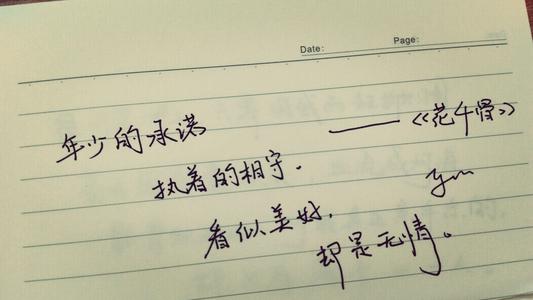 Date: Page:
年少的承诺 ——《花千骨》
执着的相守.
看似美好,
却是无情。